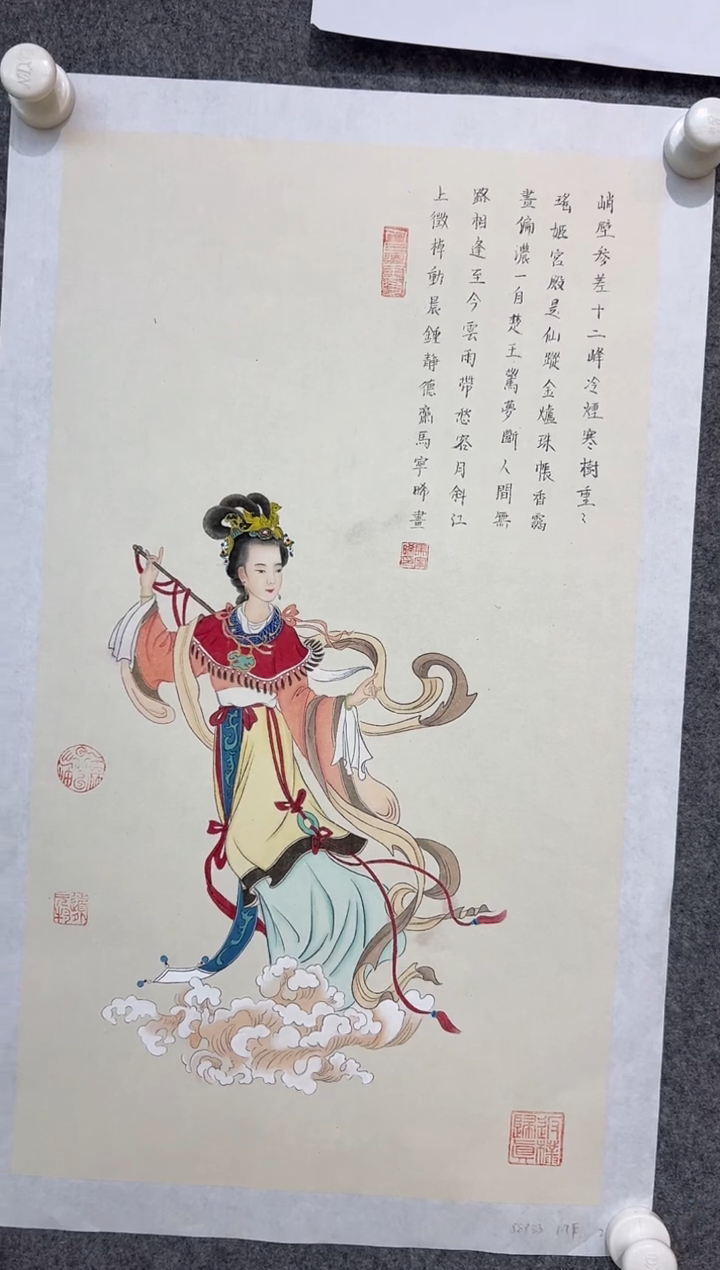 峭壁參差十二峰冷煙寒樹重〻
瑤姬宮殿是仙蹤金爐珠帳香靄
晝偏濃一自楚王驚夢斷人間無
路相逢至今雲雨帶愁容月斜江
上徵棹動晨鍾靜德齋馬寧晞畫
返樸
歸真